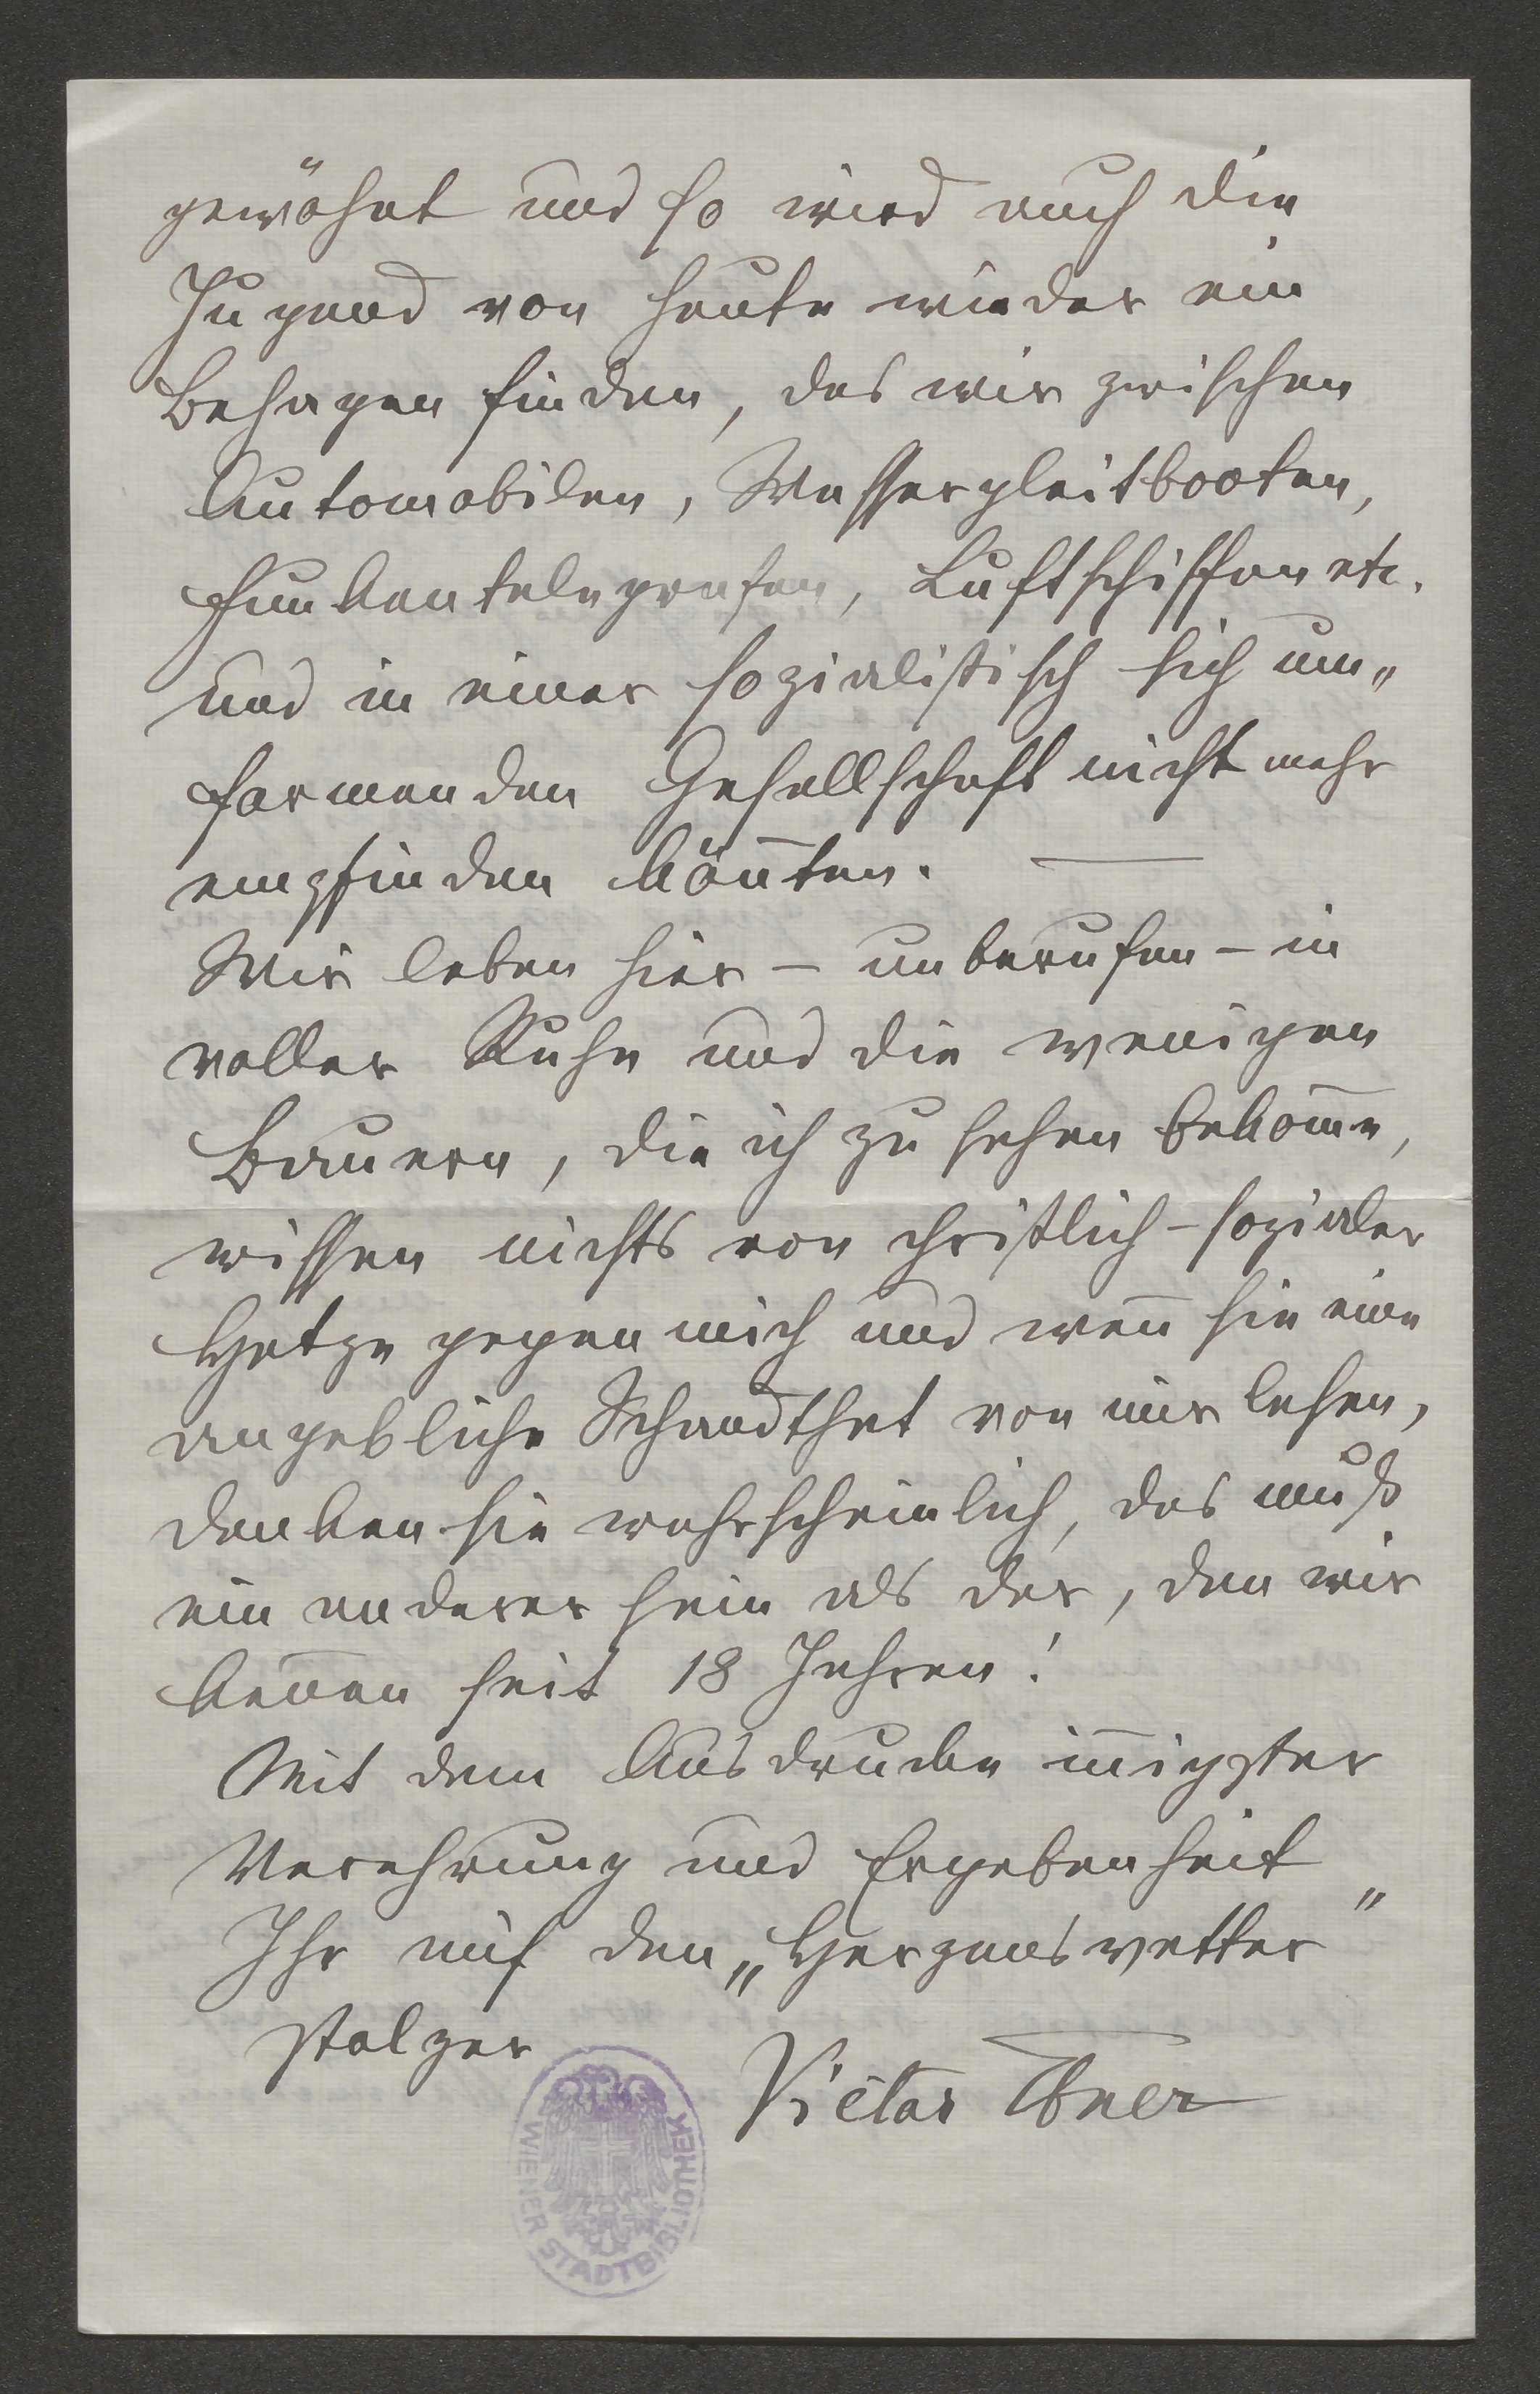 gewöhnt und so wird auch die
Jugend von heute wieder ein
Behagen finden, das wir zwischen
Automobilen, Wassergleitbooten,
Funkentelegrafen, Luftschiffen etc.
und in einer sozialistisch sich um„
formenden Gesellschaft nicht mehr
empfinden kön̄ten. —
Wir leben hier – unberufen – in
voller Ruhe und die wenigen
Bauern, die ich zu sehen bekom̄e,
wissen nichts von christlich-sozialer
Hetze gegen mich und wen̄ sie eine
angebliche Schandthat von mir lesen,
denken sie wahrscheinlich, das muß
ein anderer sein als der, den wir
ken̄en seit 18 Jahren!
Mit dem Ausdrucke in̄igster
Verehrung und Ergebenheit
Ihr auf den „Herzensvetter"
stolzer
Victor
WIENER STADTBIBLIOTHEK